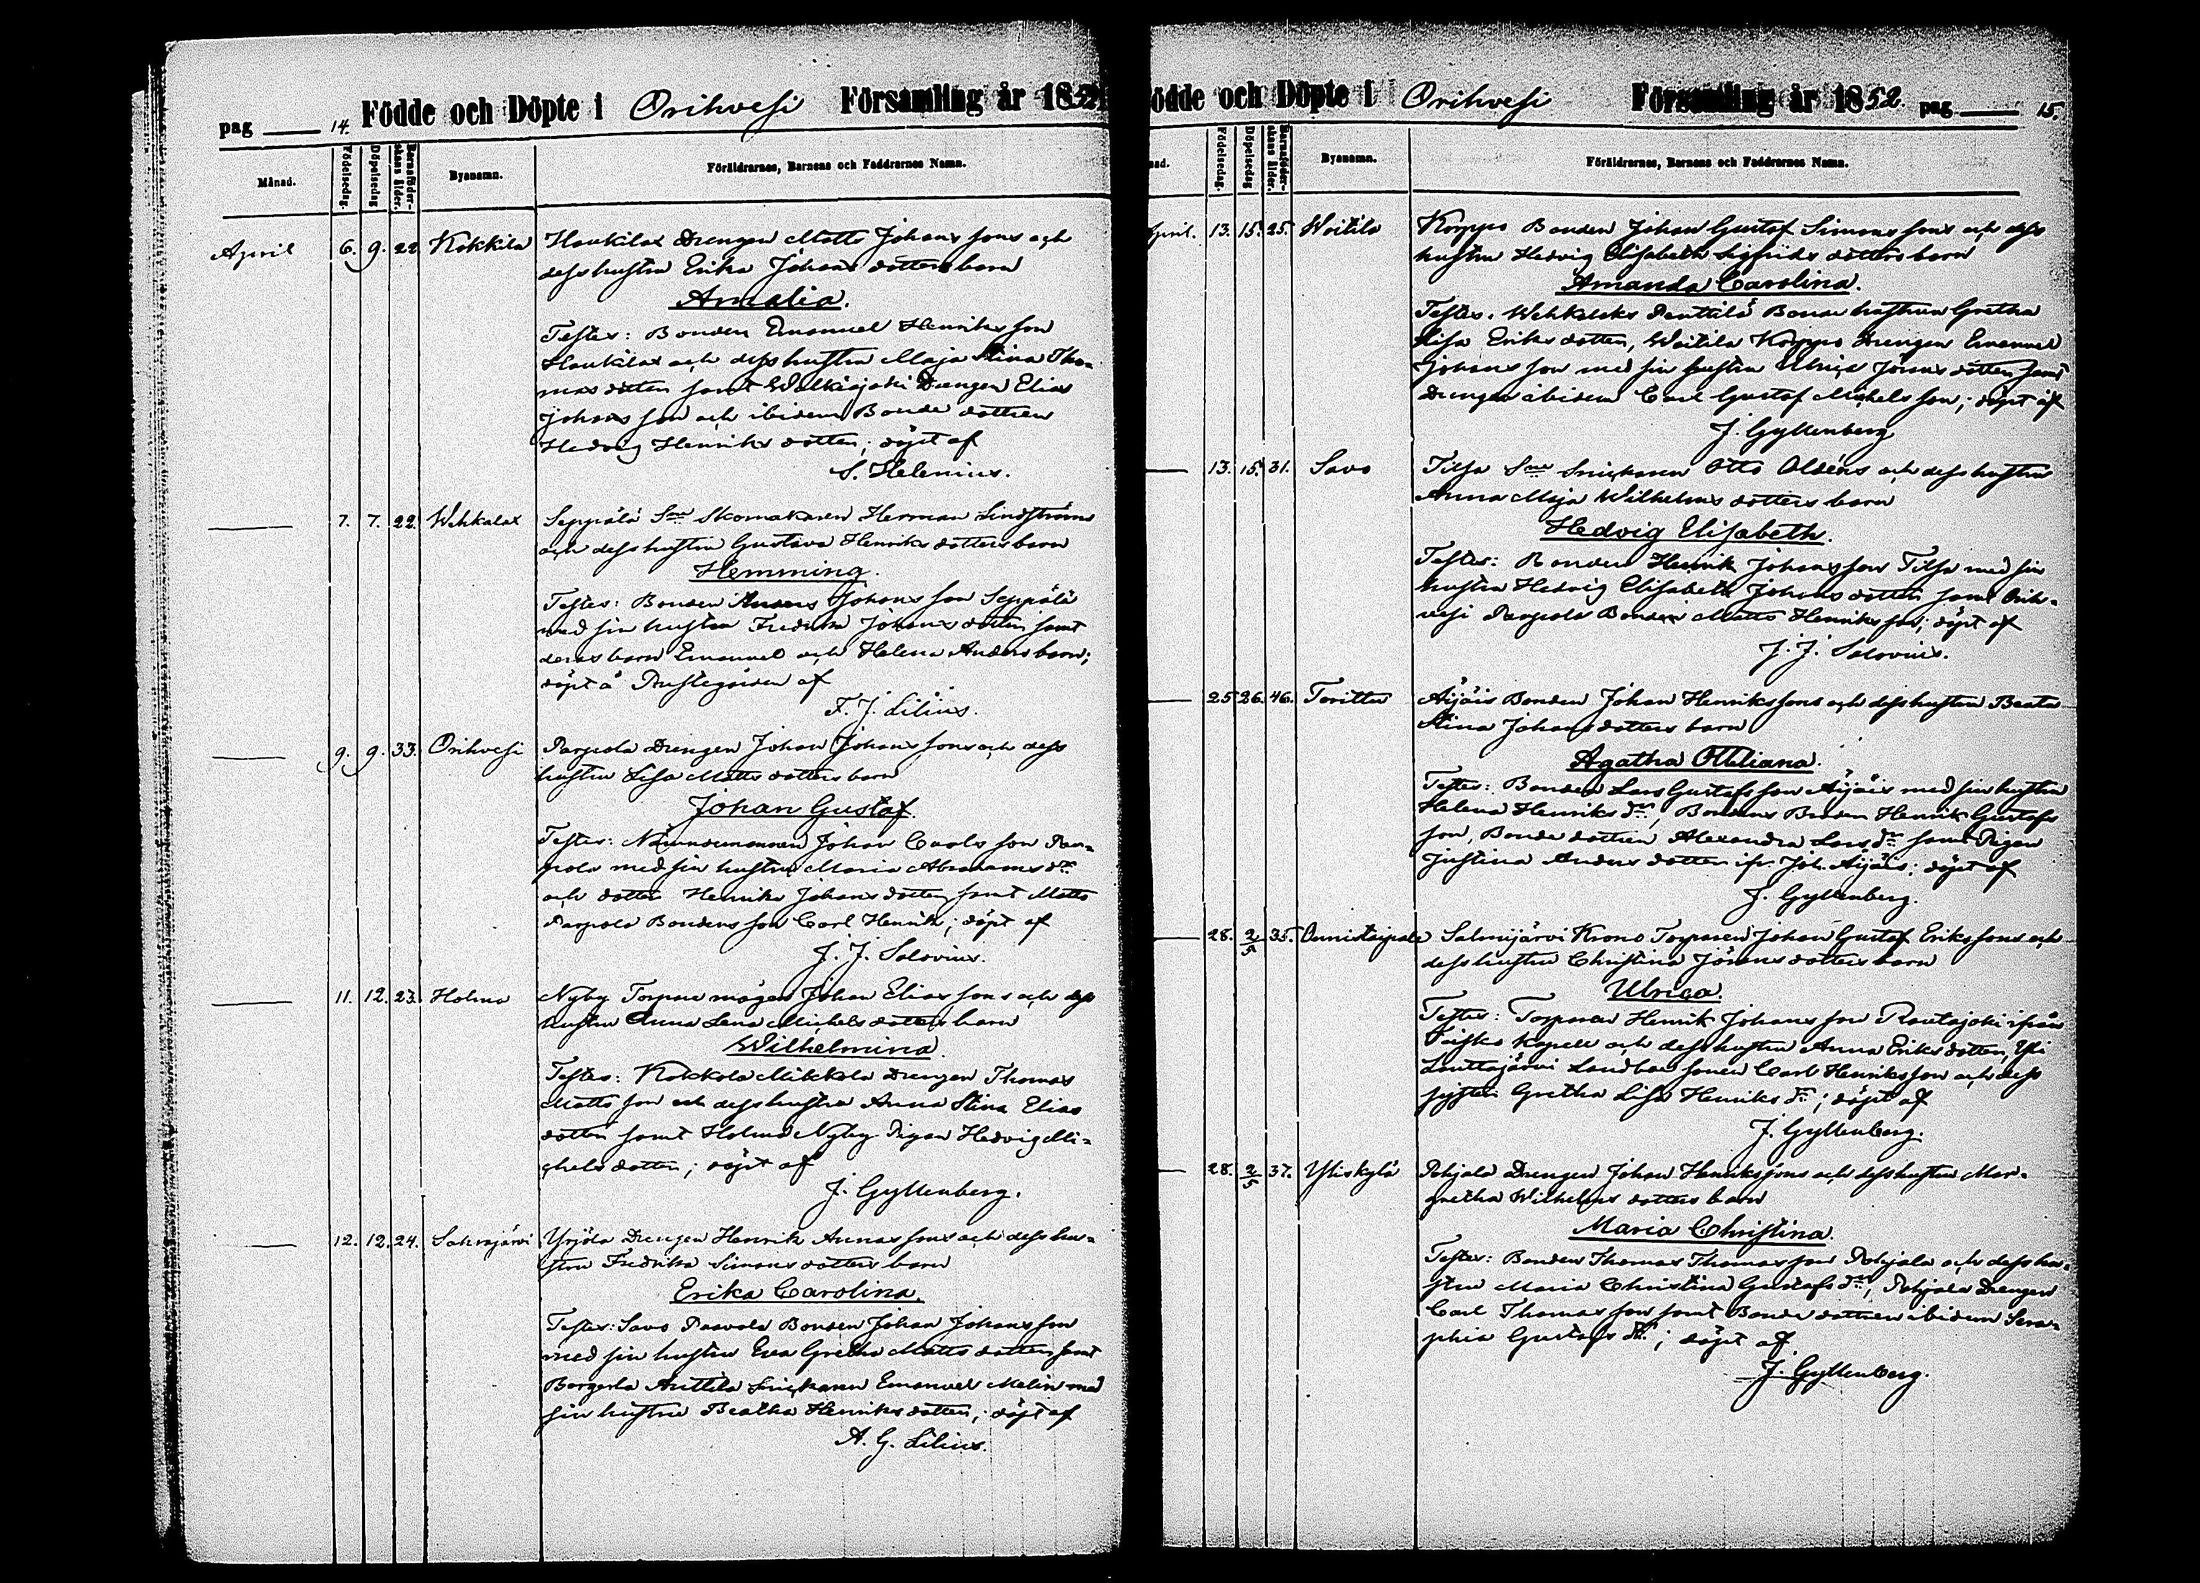 pag 14. Födde och Döpte i Orihvesi Församling år 1852
Månad. Födelsedag. Döpelsedag Barnaföderskans ålder. Bysnamn. Föräldrarnes, Barnens och Faddrarnes Namn.
April 6. 9. 22 Kokkila Haukilax Drengen Matts Johans sons och
dess hustru Erika Johans dotters barn
Amalia.
Testes: Bonden Emanuel Henriks son
Haukilax och dess hustru Maja Stina Tho-
mas dotter samt Walkiajoki Drengen Elias
Johans son och ibidem Bonde dottren
Hedvig Henriks dotter; döpt af
S. Helenius.
7. 7. 22. Wehkalax Seppälä Sme Skomakaren Herman Lindströms
och dess hustru Gustava Henriks dotters barn
Hemming.
Testes: Bonden Anders Johans son Seppälä
med sin hustru Fredrika Johans dotter samt
deras barn Emanuel och Helena Anders barn;
döpt å Prestegården af
F. J. Lilius.
9. 9. 33. Orihvesi Parpola Drengen Johan Johans sons och dess
hustru Lisa Matts dotters barn
Johan Gustaf.
Testes: Nämndemannen Johan Carls son Par-
pola med sin hustru Maria Abrahams dr
och dotter Henrika Johans dotter samt Matts
Parpola Bondens son Carl Henrik; döpt af
J. J. Salovius.
11. 12. 23. Holma Nyby Torpare mågen Johan Elias sons och dess
hustru Anna Lena Michels dotters barn
Wilhelmina.
Testes: Kokkola Mikkola Drengen Thomas
Matts son och dess hustru Anna Stina Elias
dotter samt Holma Nyby Pigan Hedvig Mi-
chels dotter; döpt af
J. Gyllenberg.
12. 12. 24. Sahrajärvi Yrjölä Drengen Henrik Annas sons och dess hu-
stru Fredrika Simons dotters barn
Erika Carolina.
Testes: Savo Paavola Bonden Johan Johans son
med sin hustru Eva Greta Matts dotter samt
Anttila Snickaren Emanuel Malin med
sin hustru Beatha Henriks dotter; döpt af
A. G. Lilius.
Födde och Döpte i Orihvesi Församling år 1852. pag 15.
nad. Födelsedag. Döpelsedag Barnaföderskans ålder. Bysnamn. Föräldrarnes, Barnens och Faddrarnes Namn.
April. 13. 15. 25. Woitila Korppo Bonden Johan Gustaf Simons sons och dess
hustru Hedvig Elisabeth Sigfrids dotters barn
Amanda Carolina.
Testes. Wehkalaks Penttilä Bonde hustrun Gretha
Lisa Eriks dotter, Woitila Korppo Drengen Emanuel
Johans son med sin hustru Ulrica Jörans dotter samt
Drengen ibidem Carl Gustaf Michels son; döpt af
J. Gyllenberg
13. 15. 31. Savo Tilsa Sme Snickaren Otto Oldéns och dess hustru
Anna Maja Wilhelms dotters barn
Hedvig Elisabeth.
Testes: Bonden Henrik Johans son Tilsa med sin
hustru Hedvig Elisabeth Johans dotter samt Orih-
vesi Parpola Bonden Matts Henriks son; döpt af
J. J. Salovius.
25 26. 46. Toritta Äijäis Bonden Johan Henriks sons och dess hustru Beata
Stina Johans dotters barn
Agatha Ottiliana.
Testes: Bonden Lars Gustafs son Äijäis med sin hustru
Helena Henriks dr, Bondens Broder Henrik Gustafs
son, Bonde dottren Alexandra Lars dr samt Pigan
Justina Anders dotter ifr. Joh. Äijäis; döpt af
J. Gyllenberg.
28. 2/5 35. Onnistaipale Salmijärvi Krono Torparen Johan Gustaf Eriks sons och
dess hustru Christina Jörans dotters barn
Ulrica.
Testes: Torparen Henrik Johans son Rautajoki ifrån
Teisko Kapell och dess hustru Anna Eriks dotter, Yli
Landbondsonen Carl Henriks son och dess
syster Gretha Lisa Henriks dr; döpt af
J. Gyllenberg.
28. 2/5 37. Yliskylä Pohjala Drengen Johan Henriks sons och dess hustru Mar-
gretha Wilhelms dotters barn
Maria Christina.
Testes: Bonden Thomas Thomas son Pohjala och dess hu-
stru Maria Christina Gustafs dr, Pohjala Drengen
Carl Thomas son samt Bonde dottren ibidem Sera-
phia Gustafs dr; döpt af
J. Gyllenberg.